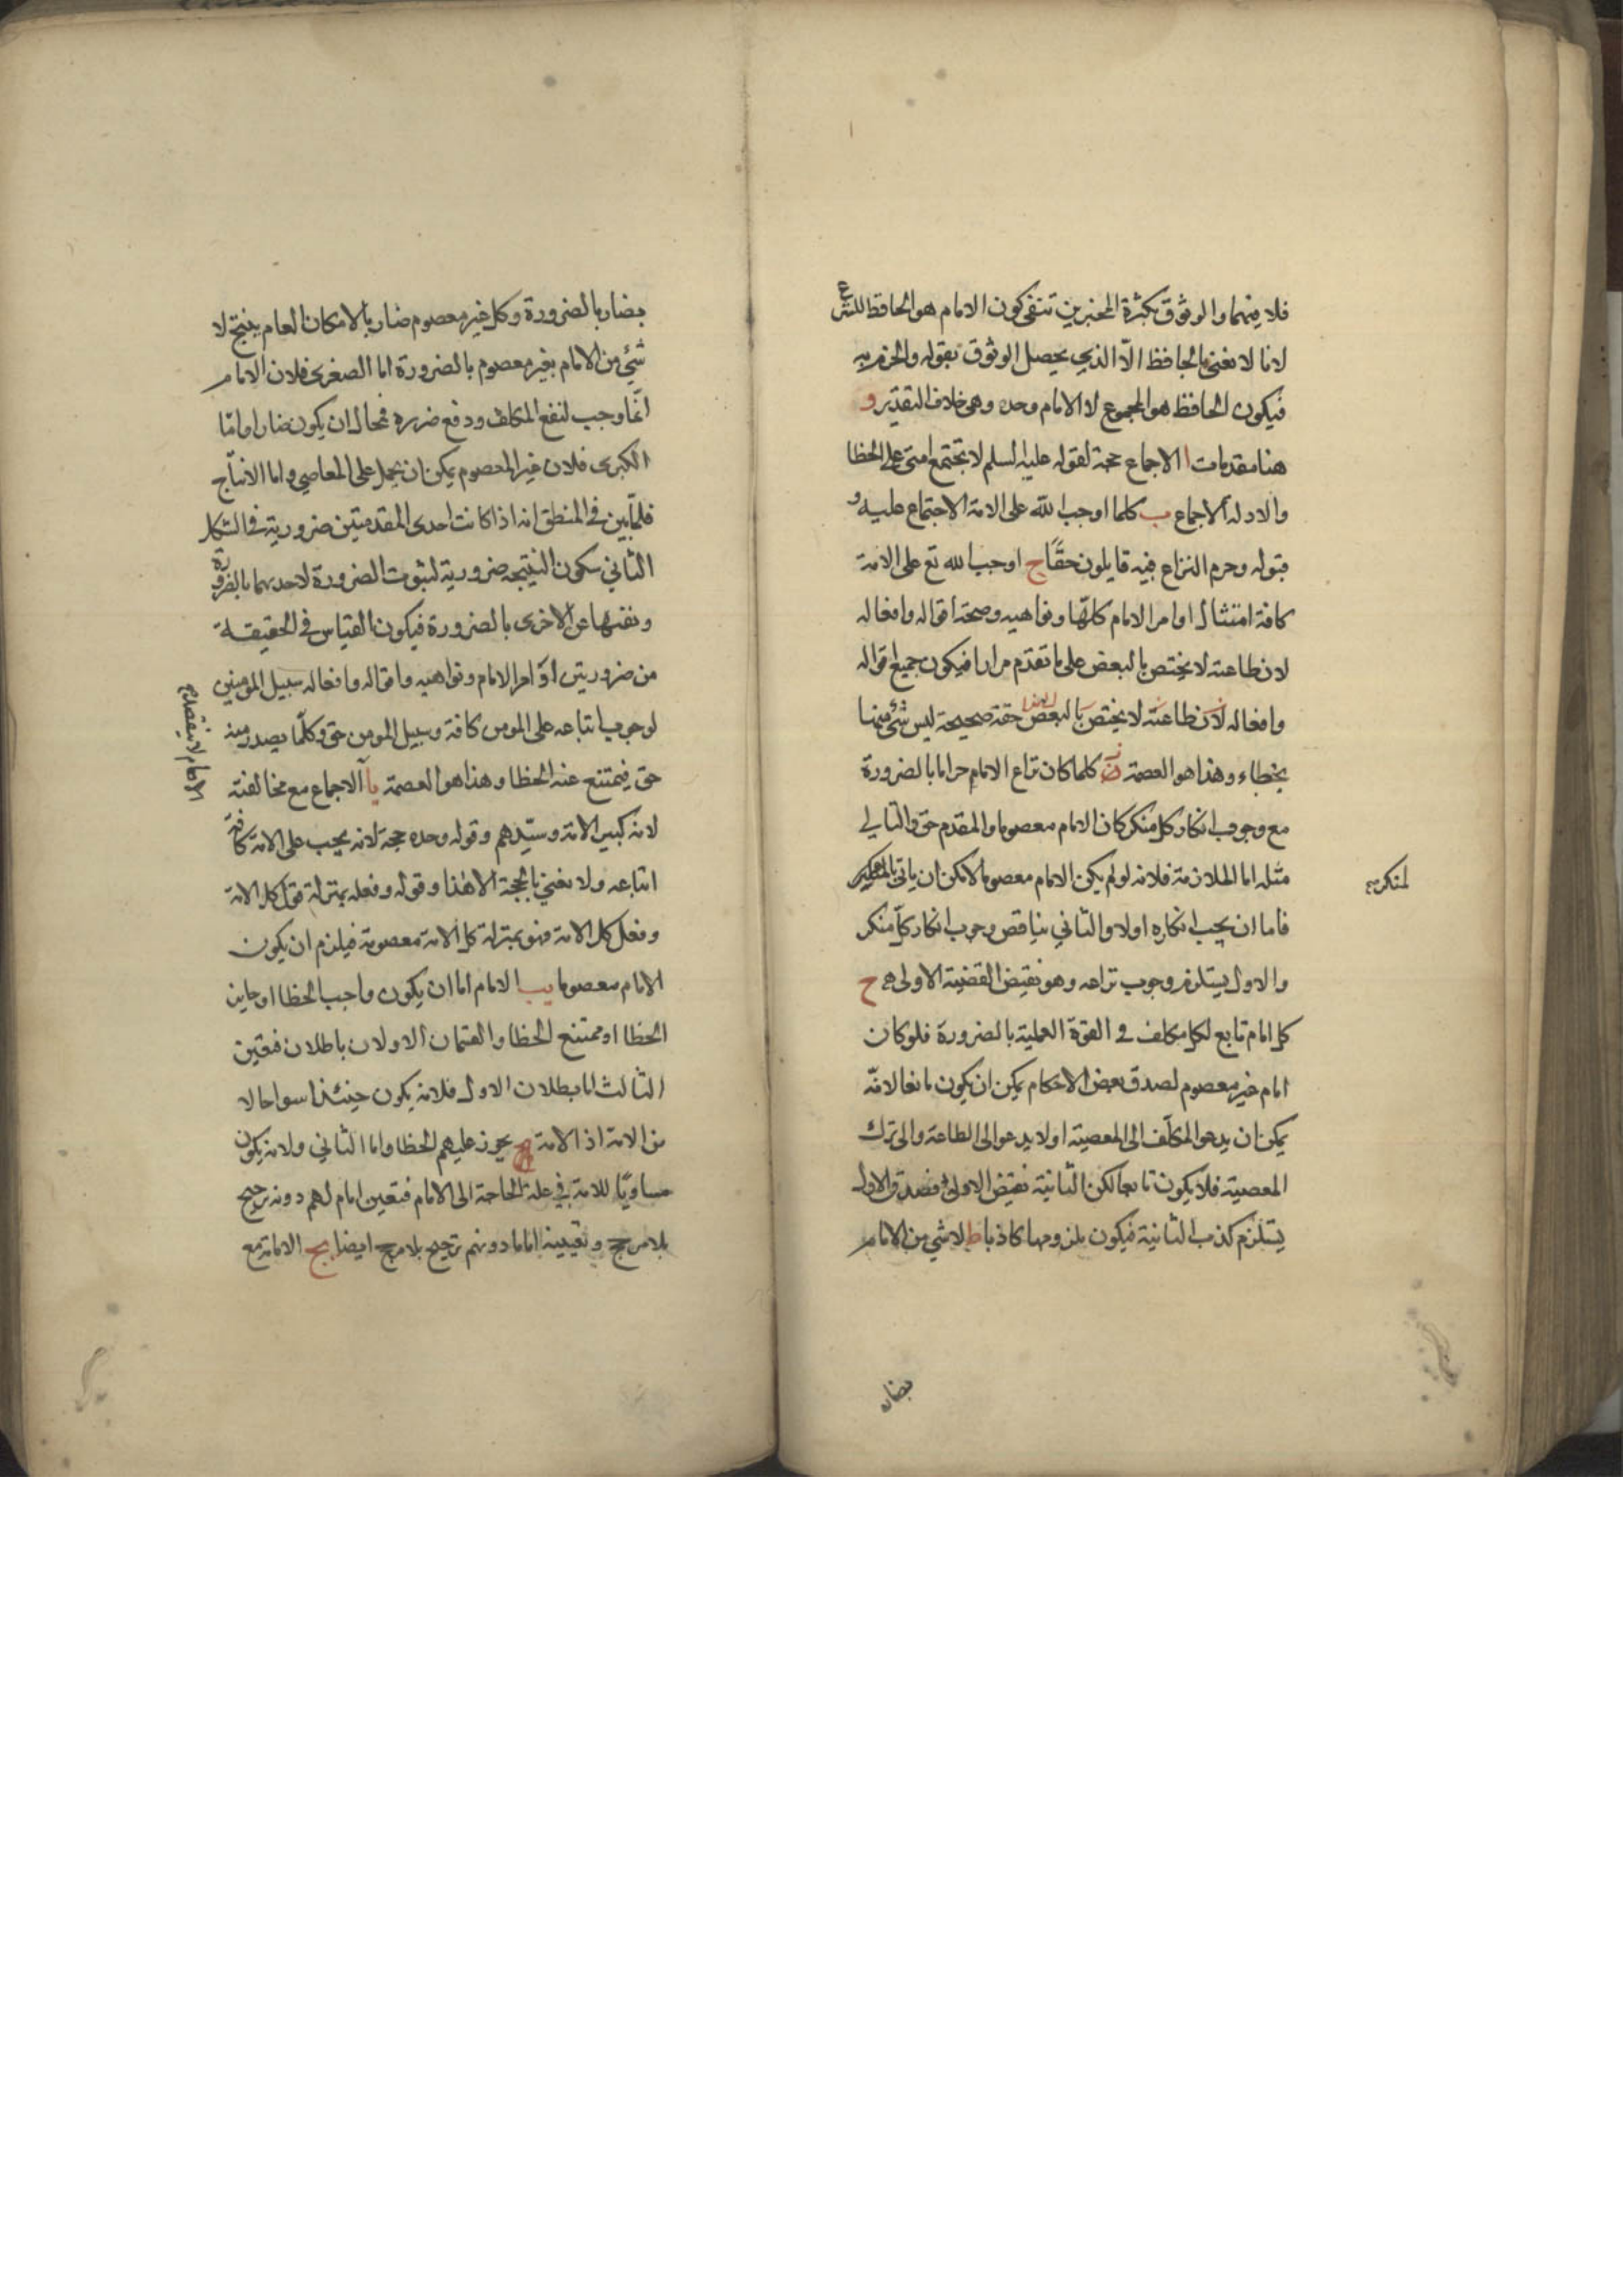 فلا فيهما والوثوق بكثرة المخبرين تنفى كون الامام هو الحافظ للشرع
لانا لا نعنى بالحافظ الّا الذي يحصل الوثوق بقوله والجزم به
فيكون الحافظ هو المجموع لا الامام وحده وهى خلاف التقدير و
هنا مقدمات ا الاجماع حجة لقوله عليه السلم لا تجتمع امتى على الخطا
والادلة الاجماع ب كلما اوجب الله على الامة الاجتماع عليه و
قبوله وحرم النزاع فيه قايلون حقًّا ج اوجب الله تع على الامة
كافة امتثال اوامر الامام كلها ونواهيه وصحة اقواله وافعاله
لان طاعته لا يختص بالبعض على ما تقدم مرارا فيكون جميع اقواله
وافعاله لان طاعته لا يختص بالبعض حقة صحيحة ليس شئ منها
بخطاء وهذا هو العصمة كلما كان نزاع الامام حراما بالضرورة
مع وجوب انكار كل منكر كان الامام معصوما والمقدم حق والتالي
مثله اما الملازمة فلانه لو لم يكن الامام معصوما لامكن ان ياتى
لمنكر
فاما ان يجب انكاره اولا والثاني يناقض وجوب انكار كل منكر
والاول يستلزم وجوب نزاعه وهو نقيض القضية الاولى ح
كل امام تابع لكل مكلف في القوة العملية بالضرورة فلو كان
امام غير معصوم لصدق بعض الاحكام يمكن ان يكون مانعا لانه
يمكن ان يدعو المكلف الى المعصية اولا يدعو الى الطاعة والى ترك
المعصية فلا يكون تابعا لكن الثانية نقيض الاولى فصدق الاول
يستلزم كذب الثانية فيكون ملزومها كاذبا ط لا شي من الامام
بضار
بضار بالضرورة وكل غير معصوم ضار بالامكان العام ينتج لا
شئ من الامام بغير معصوم بالضرورة اما الصغرى فلان الامام
انّما وجب لنفع المكلف ودفع ضرره فمحال ان يكون ضارا وامّا
الكبرى فلان غير المعصوم يمكن ان يحمل على المعاصي واما الانتاج
فلما بين في المنطق انه اذا كانت احدى المقدمتين ضرورية في الشكل
الثاني تكون النتيجة ضرورية لثبوت الضرورة لاحديهما بالضرورة
ونفيها عن الاخرى بالضرورة فيكون القياس في الحقيقة
من ضروريتين اوامر الامام ونواهيه واقواله وافعاله سبيل المومنين
لوجوب اتباعه على المومن كافة وسبيل المومن حق وكلما يصدر منه
حق فيمتنع عنه الخطا وهذا هو العصمة يا الاجماع مع مخالفته
لانه كبير الامة وسيدهم وقوله وحده حجة لانه يجب على الامة كافة
اتباعه ولا نعني بالحجة الا هذا وقوله وفعله بمنزلة قول كل الامة
وفعل كل الامة فهو بمنزلة كل الامة معصومة فيلزم ان يكون
الامام معصوما يب الامام اما ان يكون واجب الخطا او جايز
الخطا او ممتنع الخطا والقسمان الاولان باطلان فتعين
الثالث اما بطلان الاول فلانه يكون حينئذ اسوا حالا
من الامة اذ الامة يجوز عليهم الخطا واما الثاني ولانه يكون
مساويًا للامة في علة الحاجة الى الامام فتعين امام لهم دونه ترجيح
بلا مرجح وتعيينه اماما دونهم ترجيح بلا مرجح ايضا يج الامامة مع